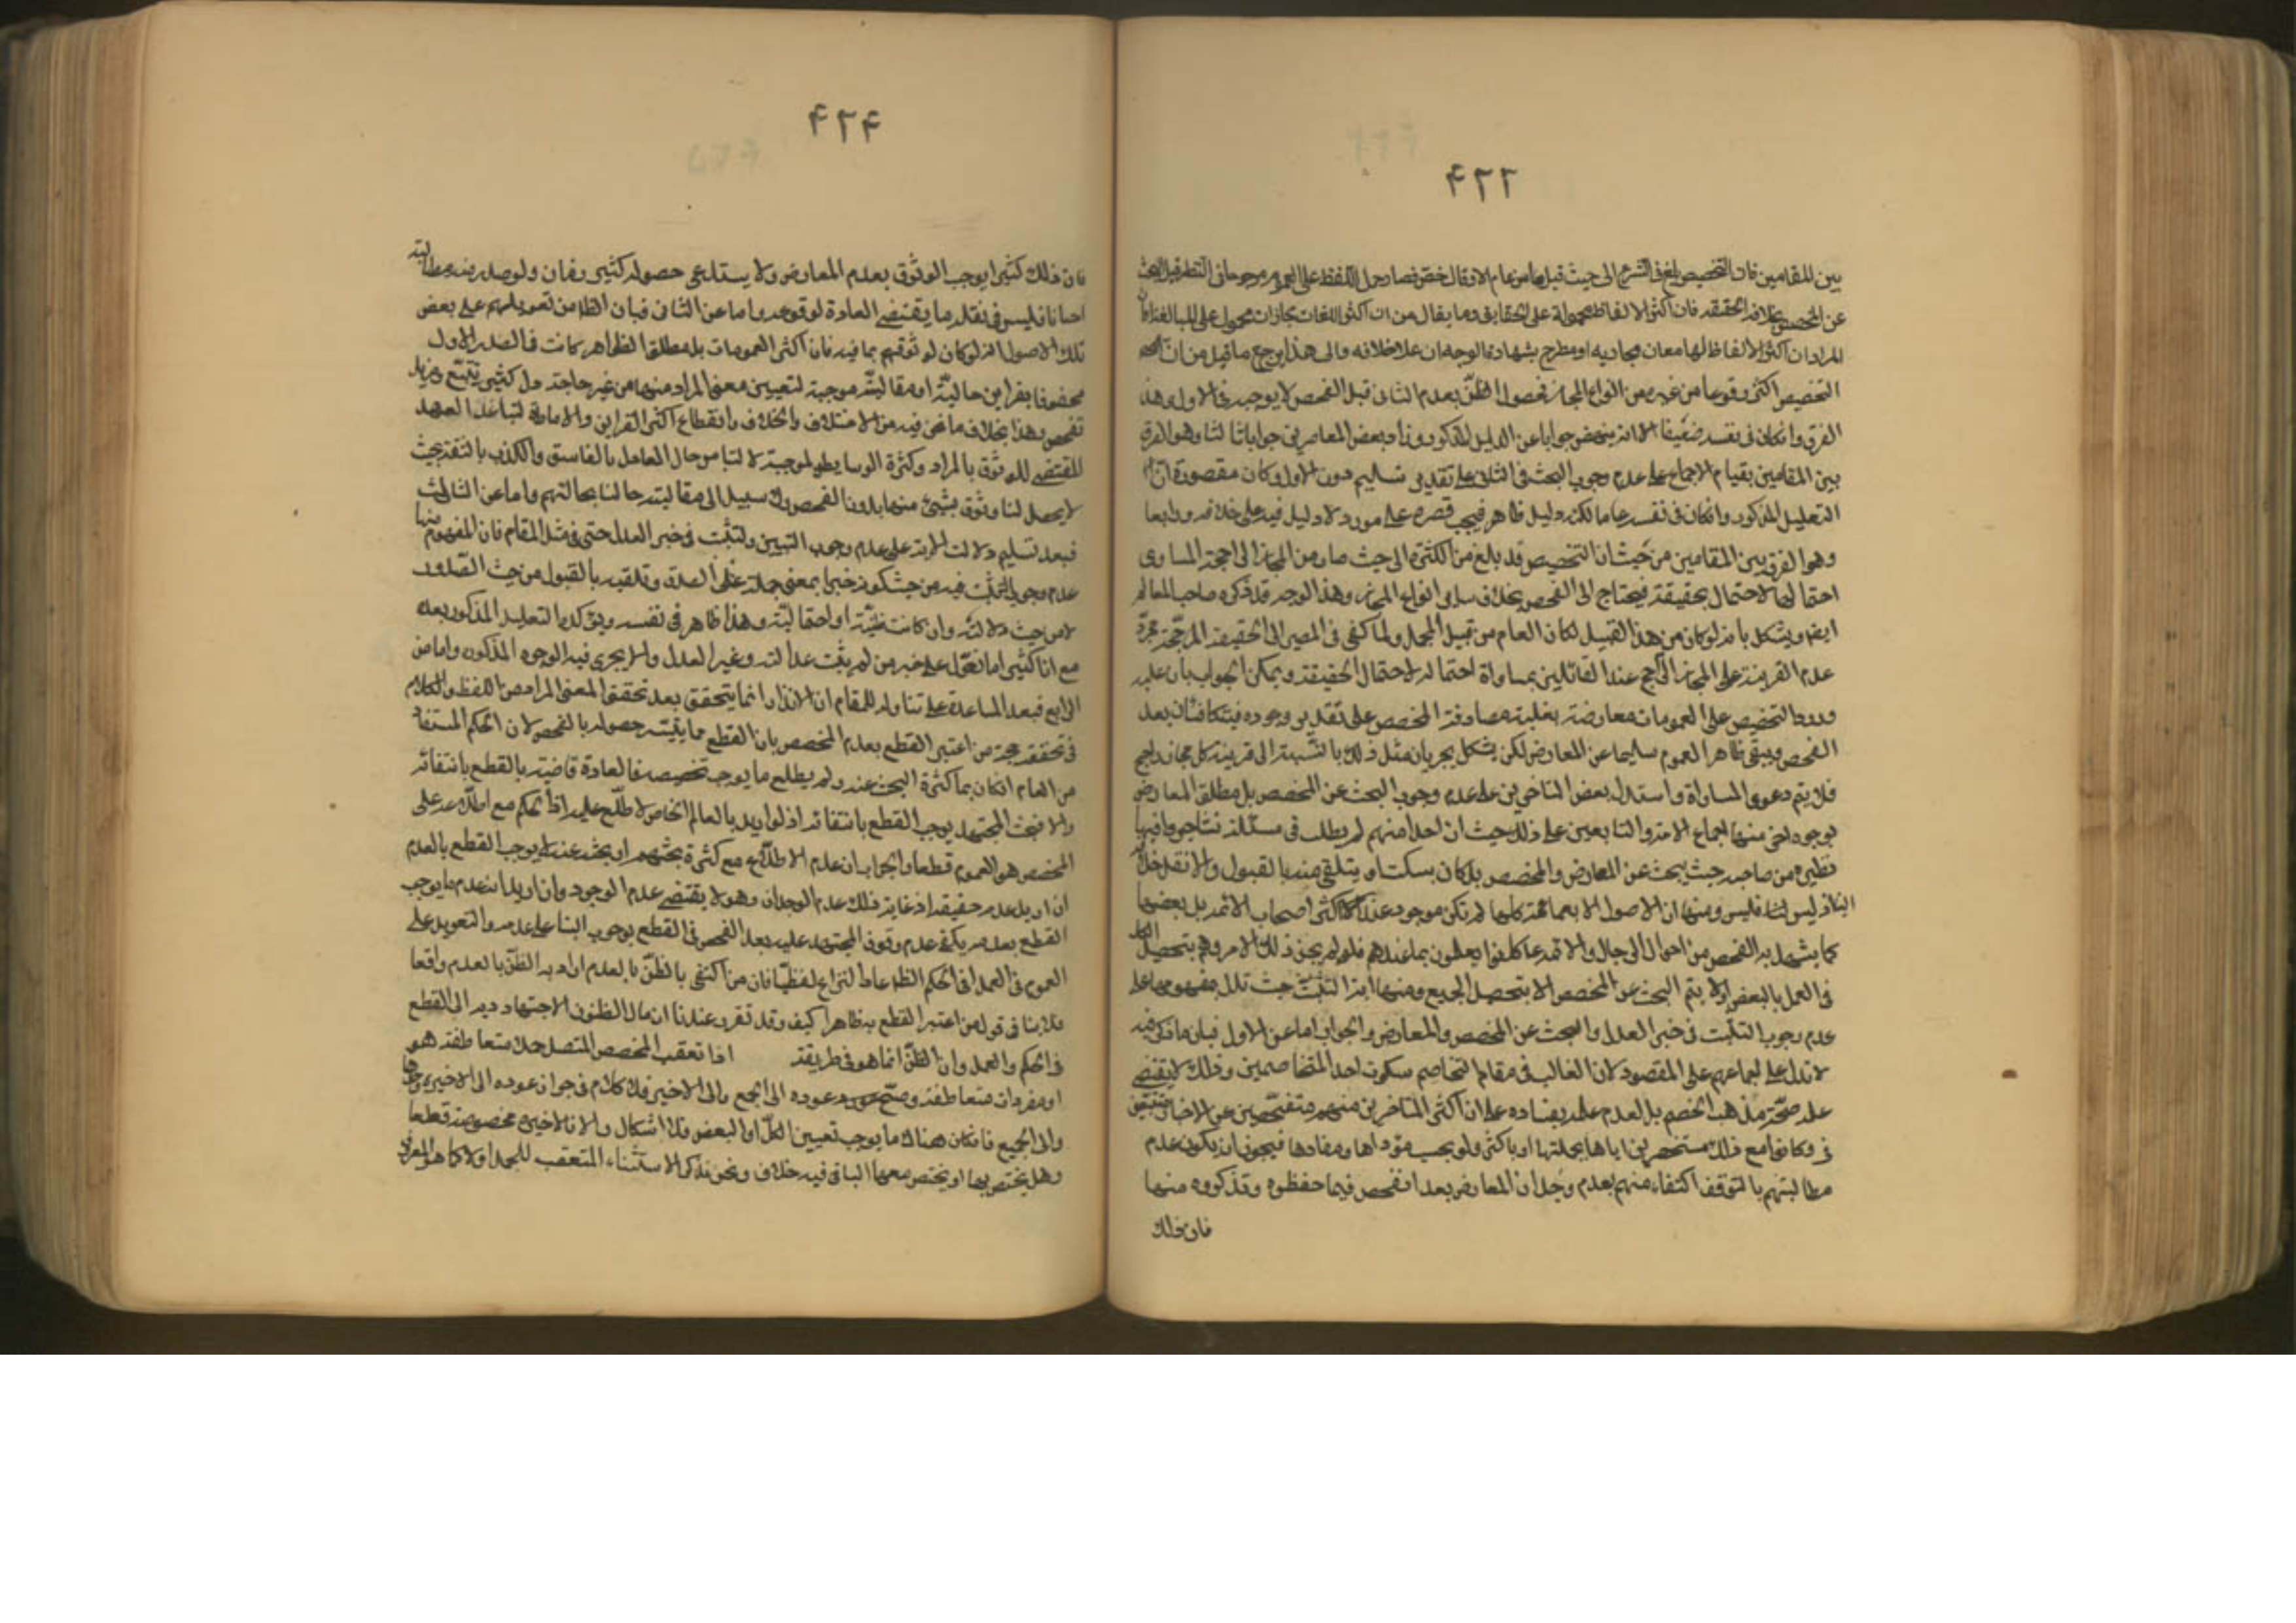 ۴۲۳
بين المقامين فان التخصيص بلغ فى الشرع الى حيث قيل ما من عام الا وقد خص فصار حمل اللفظ على العموم مرجوحا فى النظر قبل البحث
عن المخصص بخلاف الحقيقة فان اكثر الالفاظ محمولة على الحقايق وما يقال من ان اكثر اللغات مجازات محمول على المبالغة او ان
المراد ان اكثر الالفاظ لها معان مجازيه او مطرح بشهادة الوجدان على خلافه والى هذا يرجع ما قيل من ان
التخصيص اكثر وقوعا من غيره من انواع المجاز فحصول الظن بعدم الثانى قبل الفحص لا يوجبه فى الاول وهذا
الفرق وان كان فى نفسه ضعيفا الا انه ينهض جوابا عن الدليل المذكور وزاد بعض المعاصرين جوابا ثالثا وهو الفرق
بين المقامين بقيام الاجماع على عدم وجوب البحث فى الثانى على تقدير تسليمه دون الاول وكان مقصوده ان
التعليل المذكور وان كان فى نفسه عاما لكنه دليل ظاهر فيجب قصره على مورد لا دليل فيه على خلافه ورابعا
وهو الفرق بين المقامين من حيث ان التخصيص قد بلغ من الكثرة الى حيث صار من المجاز الراجحة المساوى
احتمالها لاحتمال الحقيقة فيحتاج الى الفحص بخلاف ساير انواع المجاز وهذا الوجه قد ذكره صاحب المعالم
ايضا ويشكل بانه لو كان من هذا القبيل لكان العام من قبيل المجمل ولما كفى فى المصير الى الحقيقة المرجحة مجرد
عدم القرينة على المجاز الراجح عند القائلين بمساواة احتماله لاحتمال الحقيقة ويمكن الجواب بان غلبة
ورود التخصيص على العمومات معارضة بغلبة مصادفة المخصص على تقدير وجوده فيتكافئان بعد
الفحص ويبقى ظاهر العموم سليما عن المعارض لكن يشكل بجريان مثل ذلك بالنسبة الى قرينة كل مجاز راجح
فلا يتم دعوى المساواة واستدل بعض المتاخرين على عدم وجوب البحث عن المخصص بل مطلق المعارض
بوجوه اخر منها اجماع الائمة والتابعين على ذلك حيث ان احدا منهم لم يطلب فى مسئلة تشاجروا فيها
نظيره من صاحبه حيث يبحث عن المعارض والمخصص بل كان يسكت او يتلقى منه بالقبول والا لنقل ذلك
الينا وليس فليس ومنها ان الاصول الاربعمائة كلها لم تكن موجودة عند اكثر اصحاب الائمة بل بعضها
كما يشهد به الفحص من احوال الرجال والائمة عليهم كانوا يعلمون بما عندهم فلو لم يجز ذلك الا مر وهم بتحصيل الكل
فى العمل بالبعض اذ لا يتم البحث عن المخصص الا بتحصيل الجميع ومنها اية التثبت حيث تدل بمفهومها على
عدم وجوب التثبت فى خبر العدل والبحث عن المخصص والمعارض والجواب اما عن الاول فبان ما ذكر فيه
لا تدل على اجماعهم على المقصود لان الغالب فى مقام التخاصم سكوت احد المتخاصمين وذلك لا يقتضى
علمه بصحة مذهب الخصم بل لعدم علمه بفساده على ان اكثر المتاخرين منهم متفحصين عن الاخبار
وكانوا مع ذلك مستحضرين اياها بجملتها او باكثر ولو بحسب مؤداها ومفادها فيجوز ان يكون عدم
مطالبتهم بالتوقف اكتفاء منهم بعدم وجدان المعارض بعد الفحص فيما حفظوه وتذكروه منها
فان ذلك
۴۲۴
فان ذلك كثيرا يوجب الوثوق بعدم المعارض ولا يستدعى حصوله كثير زمان ولو صدر منه مطالبته
احيانا فليس فى نقله ما يقتضى العادة لو قوعه واما عن الثانى فبان الظاهر من تعويلهم على بعض
تلك الاصول انه لو كان لو ثوقهم بما فيه فان اكثر العمومات بل مطلق الظواهر كانت فى الصدر الاول
محفوفا بقراين حالية او مقالية موجبة لتعيين معنى المراد منها من غير حاجة الى كثير تتبع ومزيد
تفحص وهذا بخلاف ما نحن فيه من الاختلاف والخلاف وانقطاع اكثر القراين والامارة لتباعد العهد
المقتضى للوثوق بالمراد وكثرة الوسايط الموجبة لالتباس حال العادل بالفاسق والكذب بالثقة بحيث
لا يحصل لنا وثوق بشئ منها بدون الفحص فلا سبيل الى مقايسة حالنا بحالتهم واما عن الثالث
فبعد تسليم دلالت الاية على عدم وجوب التبين والتثبت فى خبر العدل حتى فى مثل المقام فان المفهوم منها
عدم وجوب التثبت فيه من حيث كونه خبرا بمعنى حمله على الصدق وتلقيه بالقبول من حيث الصدور
لا من حيث دلالته وان كانت ظنية او احتمالية وهذا ظاهر فى نفسه ويؤكده التعليل المذكور بعده
مع انا كثيرا ما نعول على خبر من لم يثبت عدالته وغير العدل ولا يجرى فيه الوجوه المذكورة واما من
الرابع فبعد المساعدة على تناوله للمقام ان الانذار انما يتحقق بعد تحقق المعنى المراد من اللفظ والكلام
فى تحققه حجة من اعتبر القطع بعدم المخصص بان القطع مما يتيسر حصوله بالفحص لان الحكم المستفاد
من العام ان كان مما كثرة البحث عنه ولم يطلع ما يوجب تخصيصه فالعادة قاضية بالقطع بانتفائه
والا فبحث المجتهد يوجب القطع بانتفائه اذ لو اريد بالعالم الخاص لاطلع عليه اذ الحكم مع اطلاعه على
المخصص هو العموم قطعا والجواب ان عدم الاطلاع مع كثرة بحثهم او بحثه عنه لا يوجب القطع بالعدم
ان اريد عدمه حقيقة اذ غاية ذلك عدم الوجدان وهو لا يقتضى عدم الوجود وان اريد انه عدم ما يوجب
القطع بعدمه يكفى عدم وقوف المجتهد عليه بعد الفحص فى القطع بوجوب البناء على عدمه والتعويل على
العموم فى العمل فى الحكم الظاهر عاد النزاع لفظيا فان من اكتفى بالظن بالعدم اراد به الظن بالعدم واقعا
فلا ينافى قول من اعتبر القطع به ظاهرا كيف وقد تقرر عندنا ان مال الظنون الاجتهادية الى القطع
فى الحكم والعمل وان الظن انما هو فى طريقة اذا تعقب المخصص المتصل جملا متعاطفة هو
او مفردات متعاطفة وصح عوده الى الجميع والى الاخير فلا كلام فى جواز عوده الى الاخيرة وحدها
والى الجميع فان كان هناك ما يوجب تعيين الكل او البعض فلا اشكال والا فالاخيرة مخصوصة قطعا
وهل يختص بها او يختص معها الباقى فيه خلاف ونحن نذكر الاستثناء المتعقب للجمل اولا كما هو المعروف